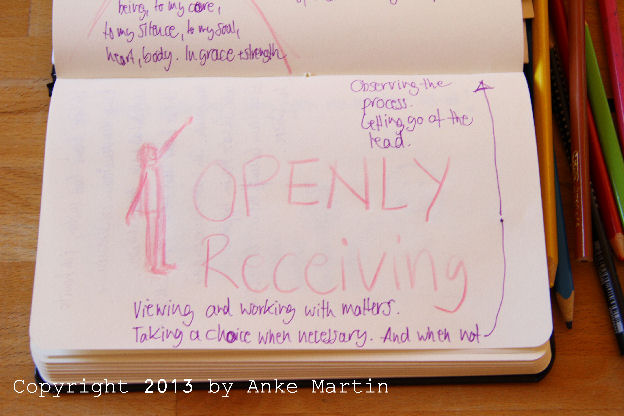 being, to my core,
to my silence, to my soul,
heart, body. In grace + strength
Observing the
process.
Letting go of the
lead.
OPENLY
Receiving
Viewing and working with matters.
Taking a choice when necessary. And when not
Copyright 2013 by Anke Martin